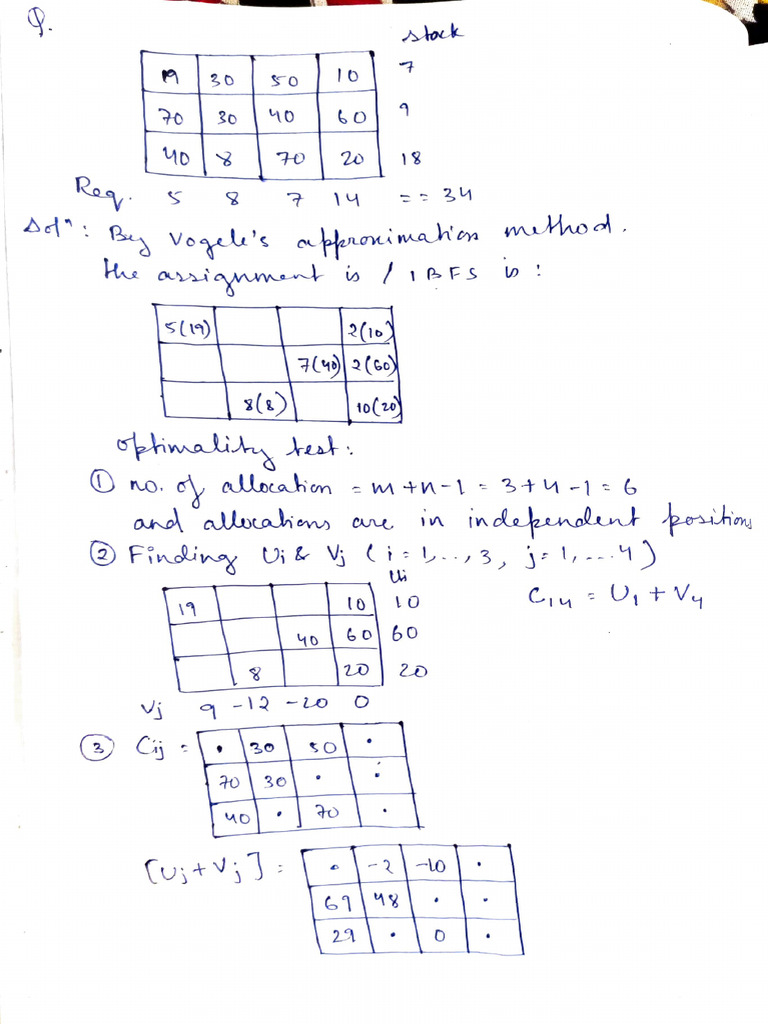 Q.
stock
19 30 50 10 7
70 30 40 60 9
40 8 70 20 18
Req. 5 8 7 14 == 34
Solⁿ: By Vogele's approximation method.
the assignment is / IBFS is :
5(19) 2(10)
7(40) 2(60)
8(8) 10(20)
optimality test:
① no. of allocation = m+n-1 = 3+4-1 = 6
and allocations are in independent positions
② Finding Ui & Vj (i=1,..,3, j=1,...4)
Ui
19 10 10 C14 = U1 + V4
40 60 60
8 20 20
Vj 9 -12 -20 0
③ Cij = • 30 50 •
70 30 • •
40 • 70 •
[Uj+Vj] = • -2 -10 •
69 48 • •
29 • 0 •